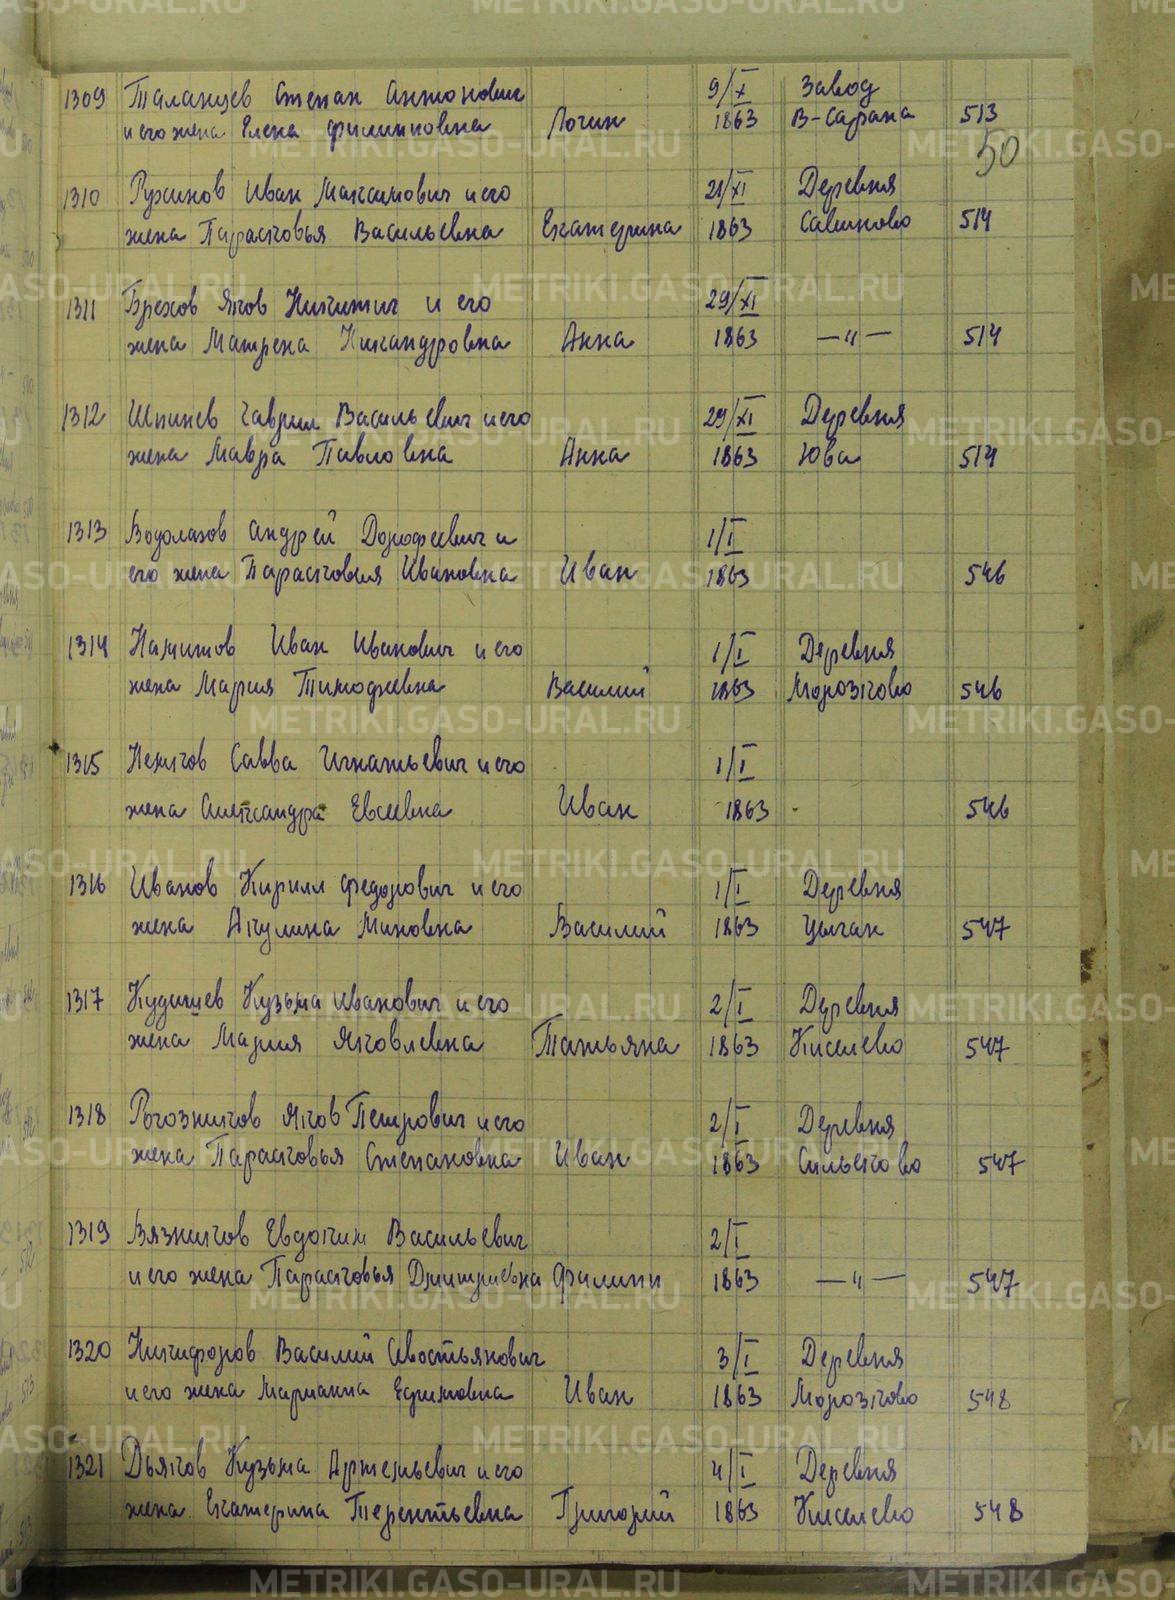 1309 Таланцев Степан Антонович 9/X Завод
и его жена Елена Филипповна Логин 1863 В-Сарана 513
50
1310 Русинов Иван Максимович и его 21/XI Деревня
жена Парасковья Васильевна Екатерина 1863 Савиново 514
1311 Брехов Яков Никитич и его 29/XI
жена Матрена Никандровна Анна 1863 —〃— 514
1312 Шпинев Гаврил Васильевич и его 29/XI Деревня
жена Мавра Павловна Анна 1863 Юва 514
1313 Водолазов Андрей Дорофеевич и 1/I
его жена Парасковия Ивановна Иван 1863 546
1314 Иван Иванович и его 1/I Деревня
жена Мария Тимофеевна Василий 1863 Морозково 546
1315 Савва Игнатьевич и его 1/I
жена Александра Евсеевна Иван 1863 546
1316 Иванов Кирилл Федорович и его 1/I Деревня
жена Акулина Миновна Василий 1863 Цыган 547
1317 Кузьма Иванович и его 2/I Деревня
жена Мария Яковлевна Татьяна 1863 Киселево 547
1318 Рогозников Яков Петрович и его 2/I Деревня
жена Парасковья Степановна Иван 1863 547
1319 Вязников Евдоким Васильевич 2/I
и его жена Парасковья Дмитриевна Филипп 1863 —〃— 547
1320 Никифоров Василий Савостьянович 3/I Деревня
и его жена Марианна Ефимовна Иван 1863 Морозково 548
1321 Дьяков Кузьма Артемьевич и его 4/I Деревня
жена Екатерина Терентьевна Григорий 1863 Киселево 548
METRIKI.GASO-URAL.RU